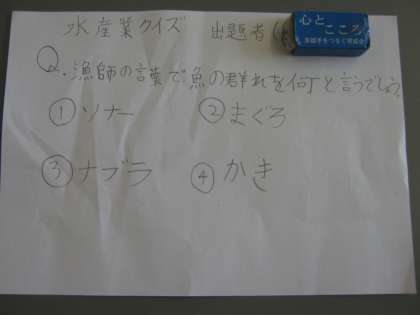 水産業クイズ 出題者
心と
こころ
Q.漁師の言葉で魚の群れを何と言うでしょう。
①ソナー ②まぐろ
③ナブラ ④かき